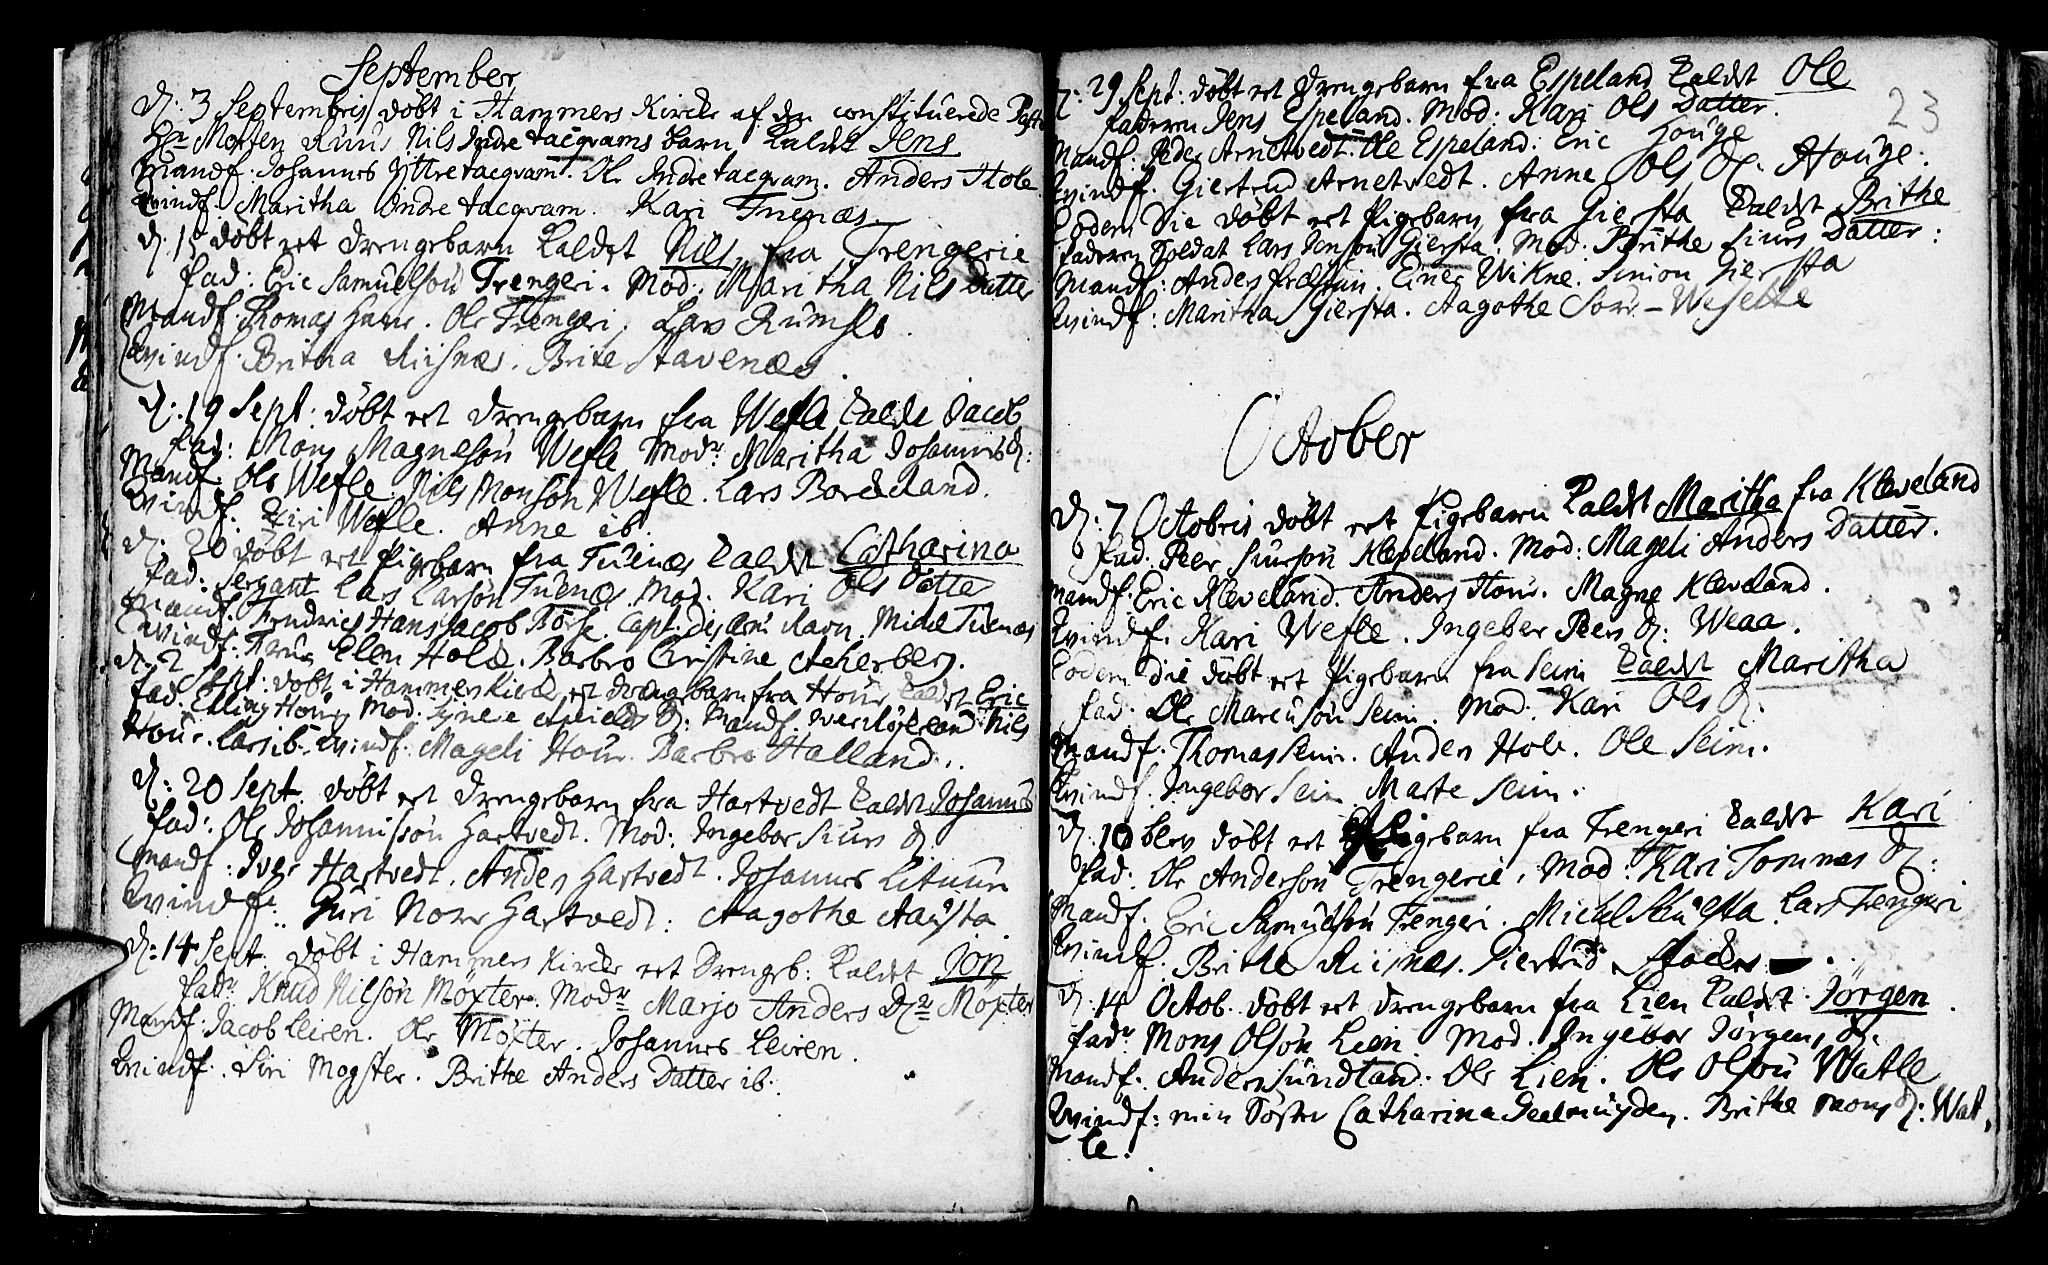 September
D: 3 Septembris döbt i Hammers Kircke af den constituerede
Hr. Morten Ruus Nils Indre tacqvams barn kaldt Jens
Mandf. Johannes Yttretacqvam. Ole Indretacqvam. Anders Hole
Qvindf. Maritha Indre tacqvam. Kari Tuenæs
D: 15 döbt et Drengebarn kaldet Nils fra Trengerie
fad: Eric Samuelsøn Trengeri. Mod: Maritha Nils Datter
Mandf. Thomas Hour. Ole Trengeri. Lars Rumslo.
Qvindf. Britha Riisnæs. Brite Stavenæs.
D: 19 Sept: döbt et Drengebarn fra Wefle kaldt Jacob
fad: Mons Magnesøn Wefle Modr: Maritha Johannis D:
Mandf. Ole Wefle. Nils Monsøn Wefle. Lars Borckeland.
Qvindf. Siri Wefle. Anne ib.
D: 20 döbt et Pigebarn fra Tuenæs kaldt Catharina
fad: Sergant Lars Larsøn Tuenæs. Mod: Kari Ols Datter
Mandf. Fendrich Hans Jacob Börse. Capt: des Ravn. Michel Tuenæs
Qvindf. Frue Elen Hold. Barbro Christine Acherberg.
D: 2 Sept: döbt i Hammers Kircke et Drengebarn fra Hour kaldet Eric
fad: Elling Hour Mod: D: Mandf. Nils
Hour. Lars ib. Qvindf: Mageli Hour. Barbro Halland.
D: 20 Sept. döbt et Drengebarn fra Hartvedt kaldt Johannes
fad: Ole Johannissøn Hartvedt. Mod: Ingebor Siurs D.
Mandf: Iver Hartvedt. Anders Hartvedt. Johannes Lituun
Qvindf: Guri Nore Hartvedt: Aagothe Aarsta
D: 14 Sept. döbt i Hammers Kircke et Drengeb: kaldet Jon
fadr Knud Nilsøn Möxter. Modr Marjo Anders Dr Möxter
Mandf. Jacob Leiren. Ole Möxter. Johannes Leiren.
Qvindf. Siri Mogster. Brithe Anders Datter ib:
23
D: 29 Sept: döbt et Drengebarn fra Espeland kaldet Ole
faderen Jens Espeland. Mod: Kari Ols Datter.
Mandf. Peder Arnetvedt. Ole Espeland. Eric Houge
Qvindf. Giertrud Arnetvedt. Anne Ols D. Houge.
Eodem Die döbt et Pigebarn fra Giersta kaldet Brithe
faderen Soldat Lars Jensøn Giersta. Mod: Brithe Siurs Datter:
Mandf: Anders Einer Wikne. Simon Giersta
Qvindf: Maritha Giersta. Aagothe Sörs-Wefelle
October
D: 7 Octobris döbt et Pigebarn kaldet Maritha fra Kleveland
fad: Peer Siursøn Kleveland. Mod: Mageli Anders Datter.
Mandf. Eric Kleveland. Anders Hour. Magne Kleveland.
Qvindf. Kari Wefle. Ingeber Peers D: Weaa.
Eodem Die döbt et Pigebarn fra Seim kaldt Maritha
fad: Ole Marcusøn Seim. Mod: Kari Ols D:
Mandf. Thomas Seim. Anders Hole. Ole Seim.
Qvindf. Ingebor Seim. Marte Seim.
D. 10 blev döbt et Pigebarn fra Trengeri kaldt Kari
fad: Ole Andersøn Trengerie. Mod: Kari Tommes D:
Mandf. Eric Samuelsøn Trengeri. Lars Trengeri
Qvindf. Brithe Riisnæs. Giertrud
D. 14 Octob. döbt et Drengebarn fra Lien kaldt Jörgen.
fadr Mons Olsøn Lien. Mod. Ingebor Jörgens D.
Mandf. Anders Sundland. Ole Lien. Ole Olsøn Watle
Qvindf: min Söster Catharina Geelmuyden. Brithe Mons D: Wat,
le.